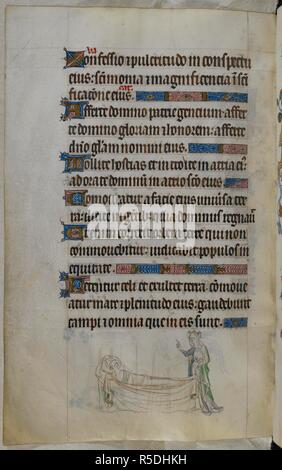 va
Confessio et pulcritudo in conspectu
eius: scimonia et magnificencia in sci
cat
ficacione eius.
Afferte domino patrie gencium affer
te domino gloriam et honorem: afferte
dno glam nomini eius.
Tollite hostias et introite in atria eius:
adorate dominum in atrio sco eius
Comoveatur a facie eius universa ter
ra: dicite in gentibus quia dominus regnavit
Etenim correxit orbem terre qui non
commovebitur: iudicabit populos in
equitate.
Letentur celi et exultet terra: comove
atur mare et plenitudo eius: gaudebunt
campi et omnia que in eis sunt.
alamy
Image ID: R5DHKH
www.alamy.com